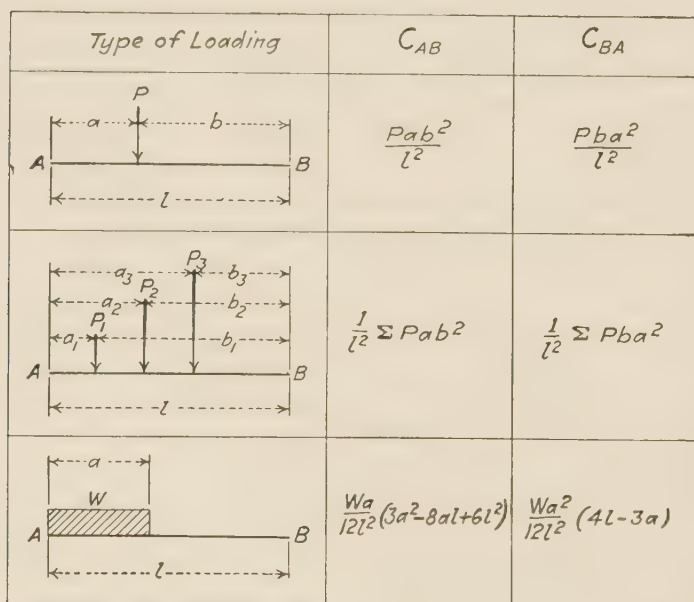 Type of Loading C_AB C_BA
P
a b
A B
l
Pab²/l² Pba²/l²
a₃ P₃ b₃
a₂ P₂ b₂
a₁ P₁ b₁
A B
l
1/l² Σ Pab² 1/l² Σ Pba²
a
W
A B
l
Wa/12l² (3a²-8al+6l²) Wa²/12l² (4l-3a)